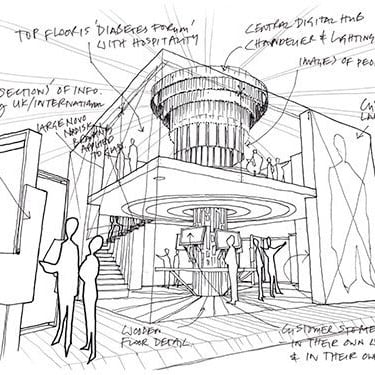 TOP FLOOR IS 'DIABETES FORUM'
WITH HOSPITALITY
CENTRAL DIGITAL HUB
CHANDELIER & LIGHTING
IMAGES OF PEO
SECTION) OF INFO.
UK/INTERNATIONAL
LARGE NOVO
NORDISK
BRANDING
APPLIED
TO
CU
LA
WOODEN
FLOOR DETAIL
CUSTOMER STORIES
IN THEIR OWN L
& IN THEIR OW